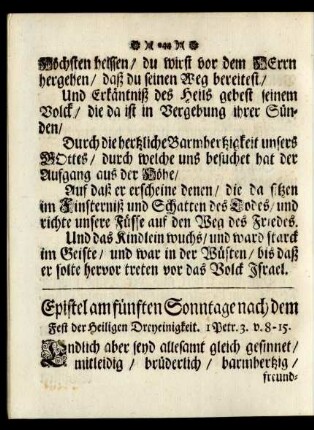 Höchsten heissen / du wirst vor dem HErrn
hergehen / daß du seinen Weg bereitest /
Und Erkäntniß des Heils gebest seinem
Volck / die da ist in Vergebung ihrer Sün-
den /
Durch die hertzliche Barmhertzigkeit unsers
GOttes / durch welche uns besuchet hat der
Aufgang aus der Höhe /
Auf daß er erscheine denen / die da sitzen
im Finsterniß und Schatten des Todes / und
richte unsere Füsse auf den Weg des Friedes.
Und das Kindlein wuchs / und ward starck
im Geiste / und war in der Wüsten / bis daß
er solte hervor treten vor das Volck Israel.
Epistel am fünften Sonntage nach dem
Fest der Heiligen Dreyeinigkeit. 1 Petr. 3. v. 8-15.
Endlich aber seyd allesamt gleich gesinnet /
mitleidig / brüderlich / barmhertzig /
freund-